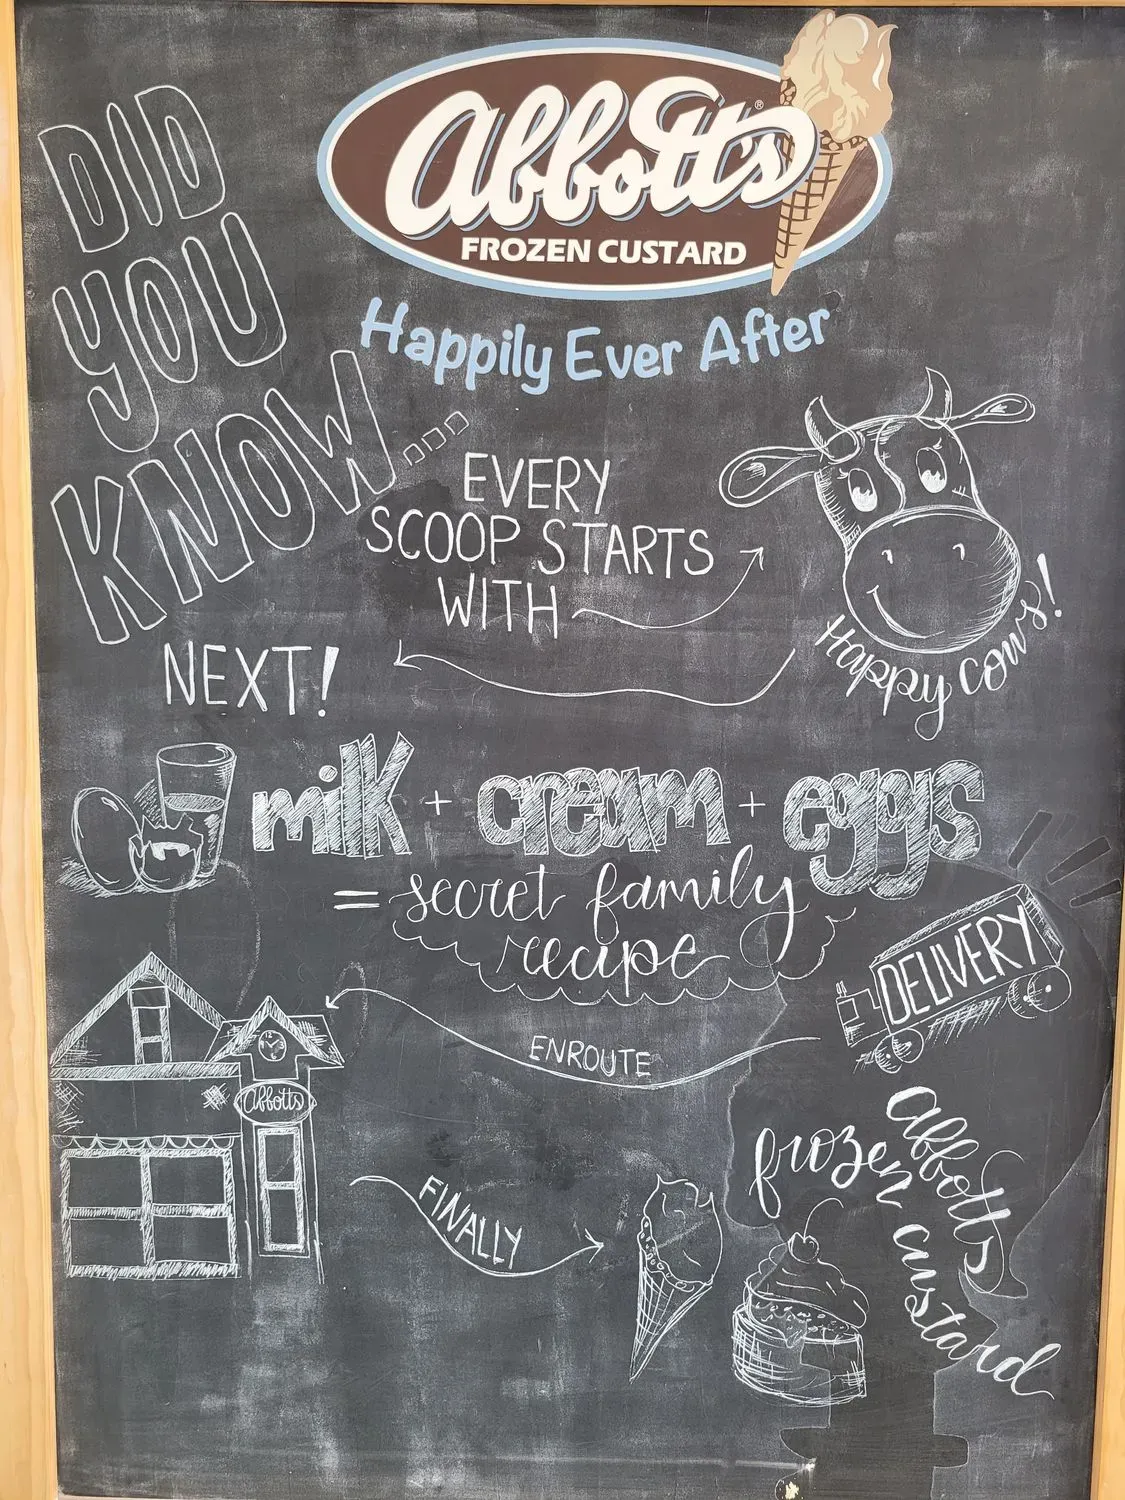 Abbott's®
FROZEN CUSTARD
Happily Ever After
DID
YOU
KNOW...
EVERY
SCOOP STARTS
WITH
Happy Cows!
NEXT!
milk + cream + eggs
= secret family
recipe
DELIVERY
ENROUTE
Abbotts
FINALLY
Abbotts
frozen custard